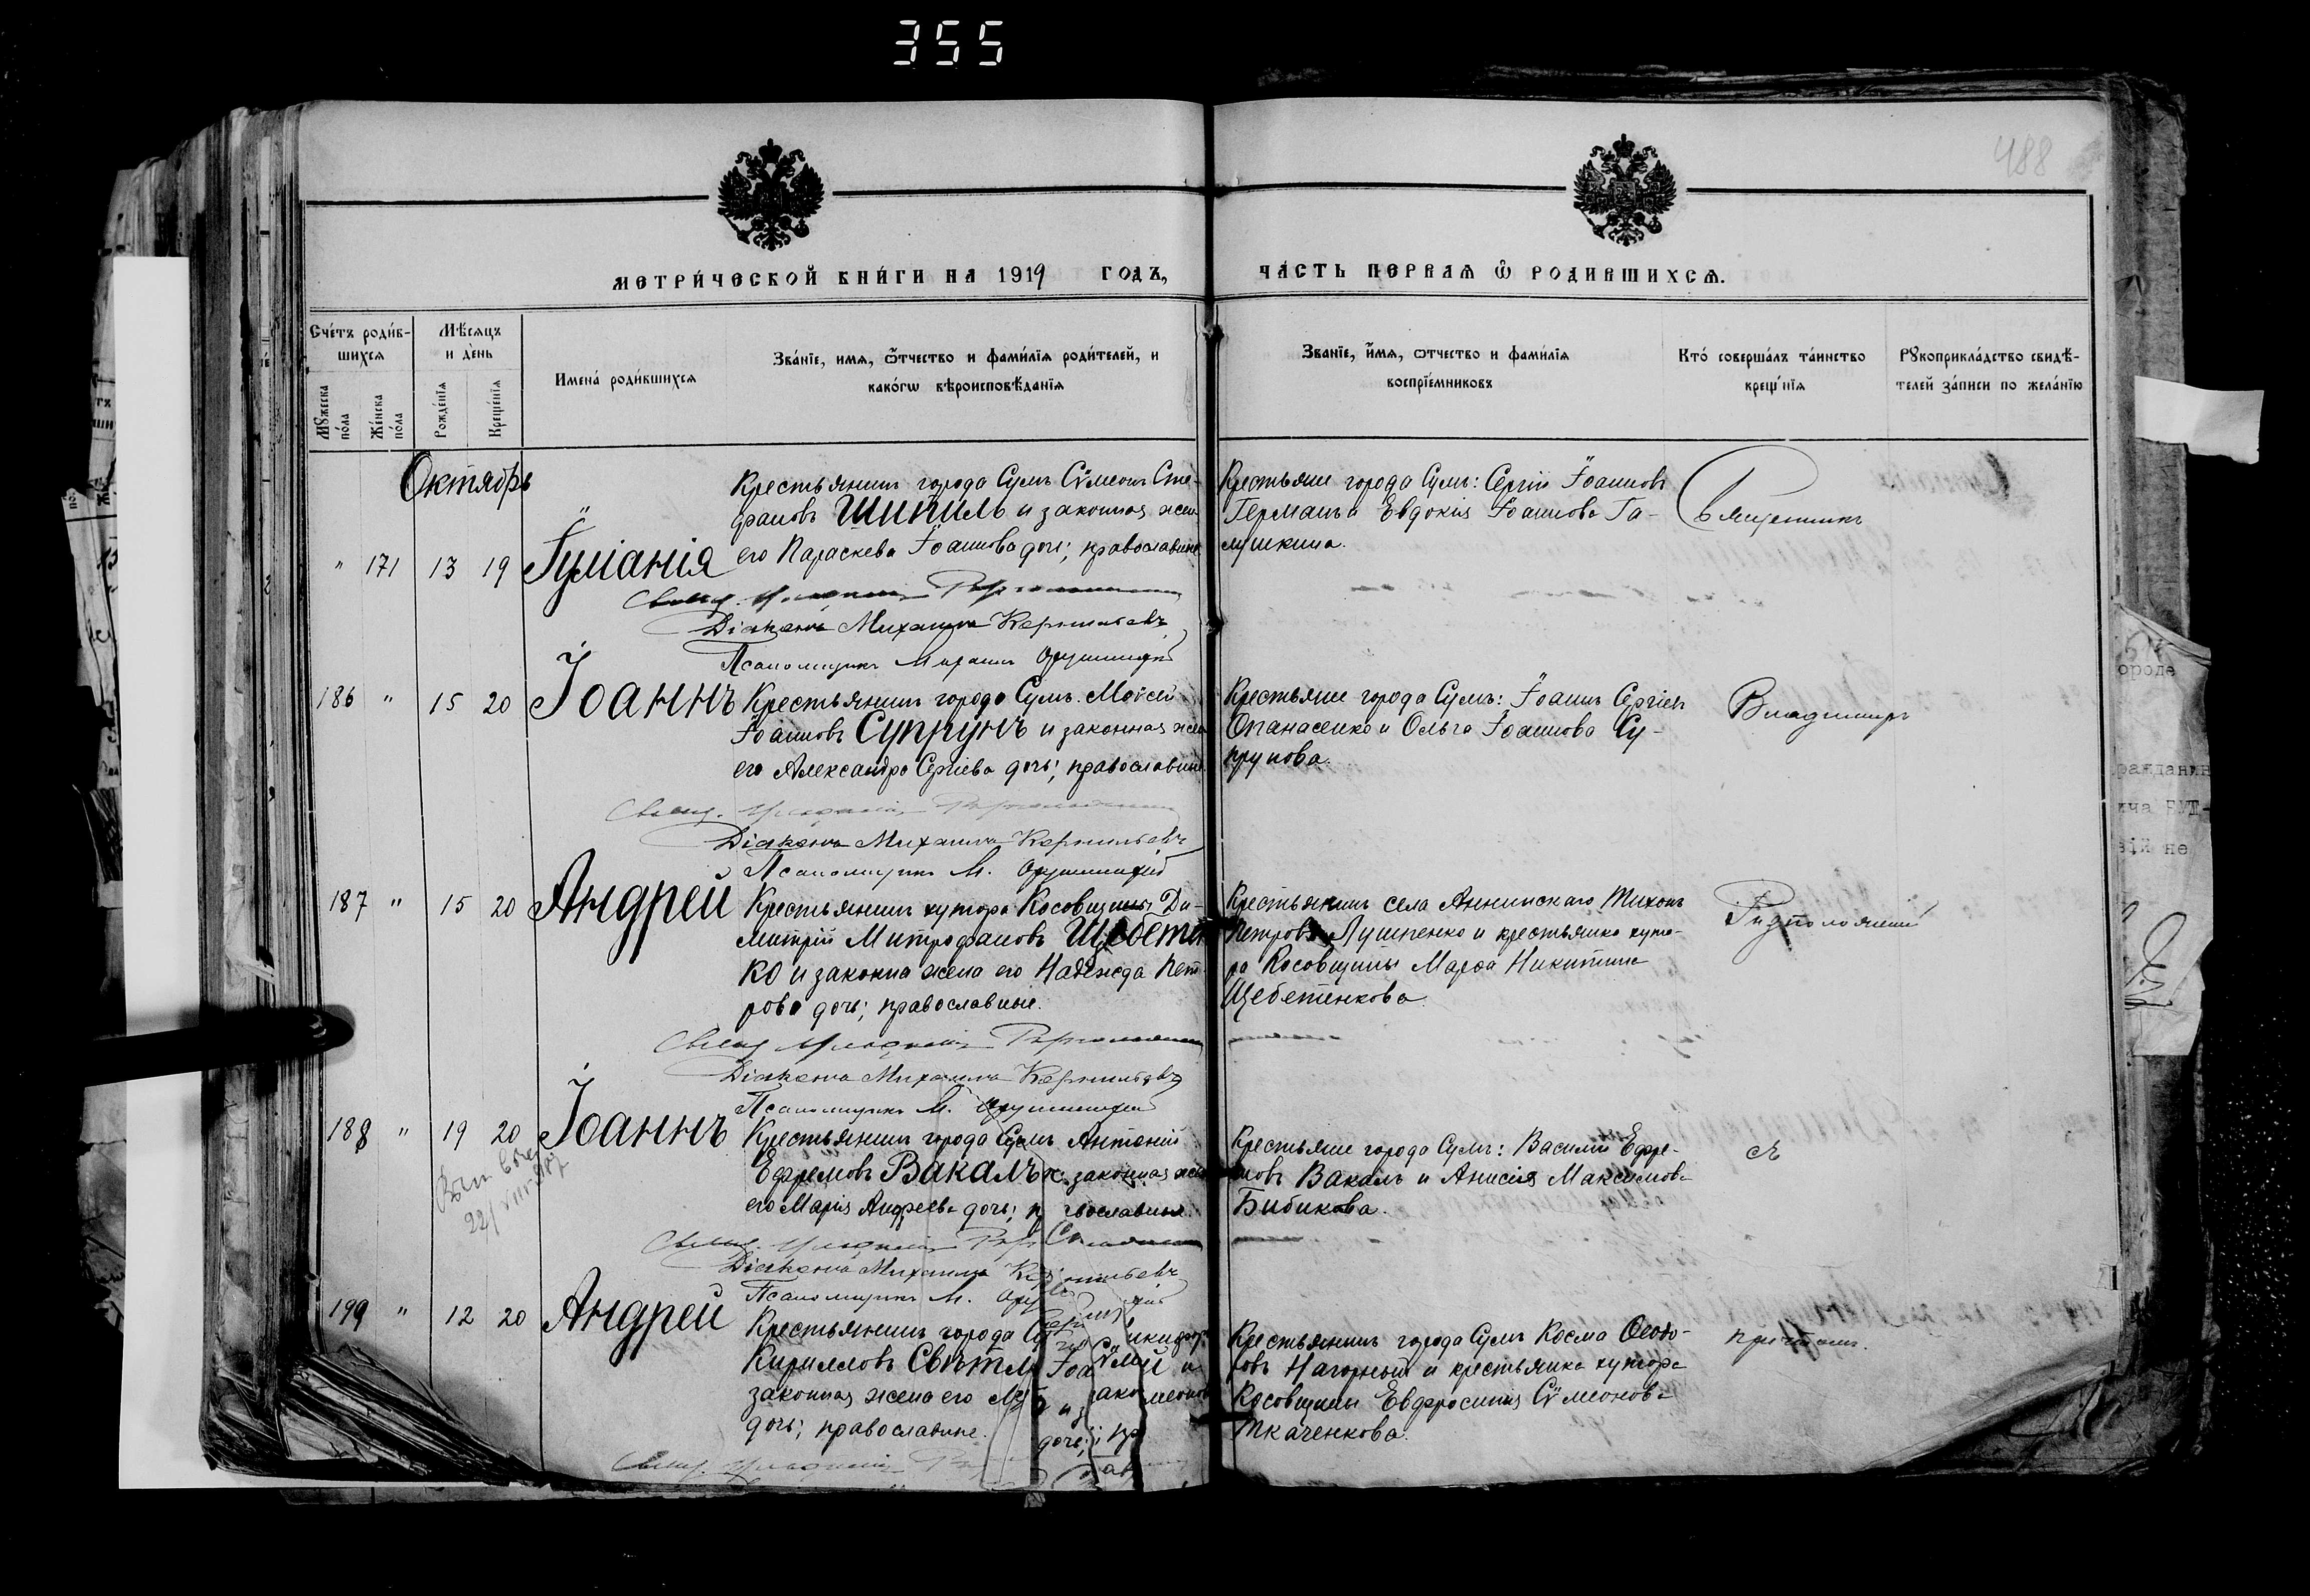 355
488
МЕТРИ́ЧЕСКОЙ КНИ́ГИ НА 1919 ГОДЪ,
ЧА́СТЬ ПЕРВАѦ Ѡ҆ РОДИВШИХСѦ.
Сче́тъ роди́в-
шихсѧ
Мꙋ́жеска
по́ла
Же́нска
по́ла
Мѣ́сѧцъ
и де́нь
Рожде́нїѧ
Креще́нїѧ
Имена́ роди́вшихсѧ
Зва́нїе, имѧ, ѻ҆́тчество и фами́лїѧ роди́телей, и
како́гѡ вѣроисповѣ́данїѧ
Званїе, и҆́мѧ, ѻтчество и фами́лїѧ
воспрїе́мниковъ
Кто́ соверша́лъ та́инство
крещ́нїѧ
Рꙋкоприкла́дство свидѣ́-
телей за́писи по жела́нїю
Октябрь
" 171 13 19 Іуліанія
Крестьянинъ города Сумъ Сѵмеонъ Сте-
фановъ Шипиль и законная жена
его Параскева Іоаннова дочь; православные
Крестьяне города Сумъ: Сергій Іоанновъ
Германъ и Евдокія Іоаннова Га-
лушкина.
Священникъ
Діаконъ Михаилъ
Псаломщикъ
186 " 15 20 Іоаннъ
Крестьянинъ города Сумъ Моѵсей
Іоанновъ Супрунъ и законная жена
его Александра Сергіева дочь; православные
Крестьяне города Сумъ: Іоаннъ Сергіевъ
Опанасенко и Ольга Іоаннова Су-
прунова.
Владимиръ
Діаконъ Михаилъ
Псаломщикъ М.
187 " 15 20 Андрей
Крестьянинъ хутора Косовщины Ди-
митрій Митрофановъ Щебетен
ко и законна жена его Надежда Пет-
рова дочь; православные.
Крестьянинъ села Аннинскаго Тихонъ
Петровъ Лушпенко и крестьянка хуто-
ра Косовщины Марѳа Никитина
Щебетенкова.
Діаконъ Михаилъ
Псаломщикъ М.
188 " 19 20 Іоаннъ
Крестьянинъ города Сумъ Антоній
Ефремовъ Вакалъ и законная жена
его Марія Андреева дочь; православные.
Крестьяне города Сумъ: Василій Ефре-
мовъ Вакалъ и Анисія Максимова
Бибикова.
съ
Діаконъ Михаилъ
Псаломщикъ М.
199 " 12 20 Андрей
Крестьянинъ города
Кирилловъ
законная жена его
дочь; православные.
Крестьянинъ города Сумъ Косма Ѳеодо-
ровъ Нагорный и крестьянка хутора
Косовщины Евфросинія Сѵмеонова
Ткаченкова.
причтомъ.